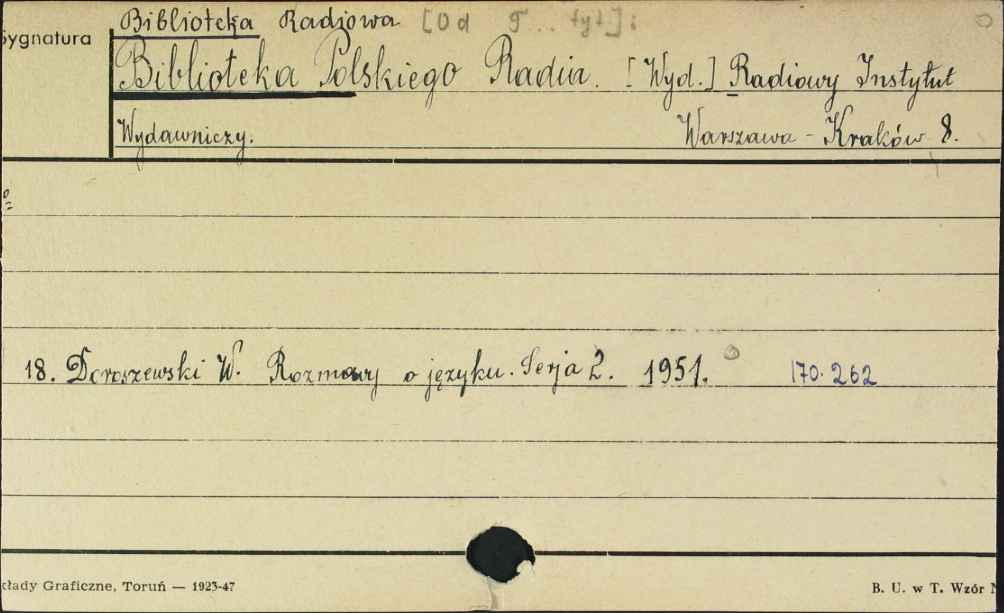 Biblioteka Radjowa [Od 5... tyt]:
Sygnatura
Biblioteka Polskiego Radia. [Wyd.] Radiowy Instytut
Wydawniczy. Warszawa - Kraków 8.
18. Doroszewski W. Rozmowy o języku. Serja 2. 1951. 170.262
kłady Graficzne, Toruń — 1923-47
B. U. w T. Wzór